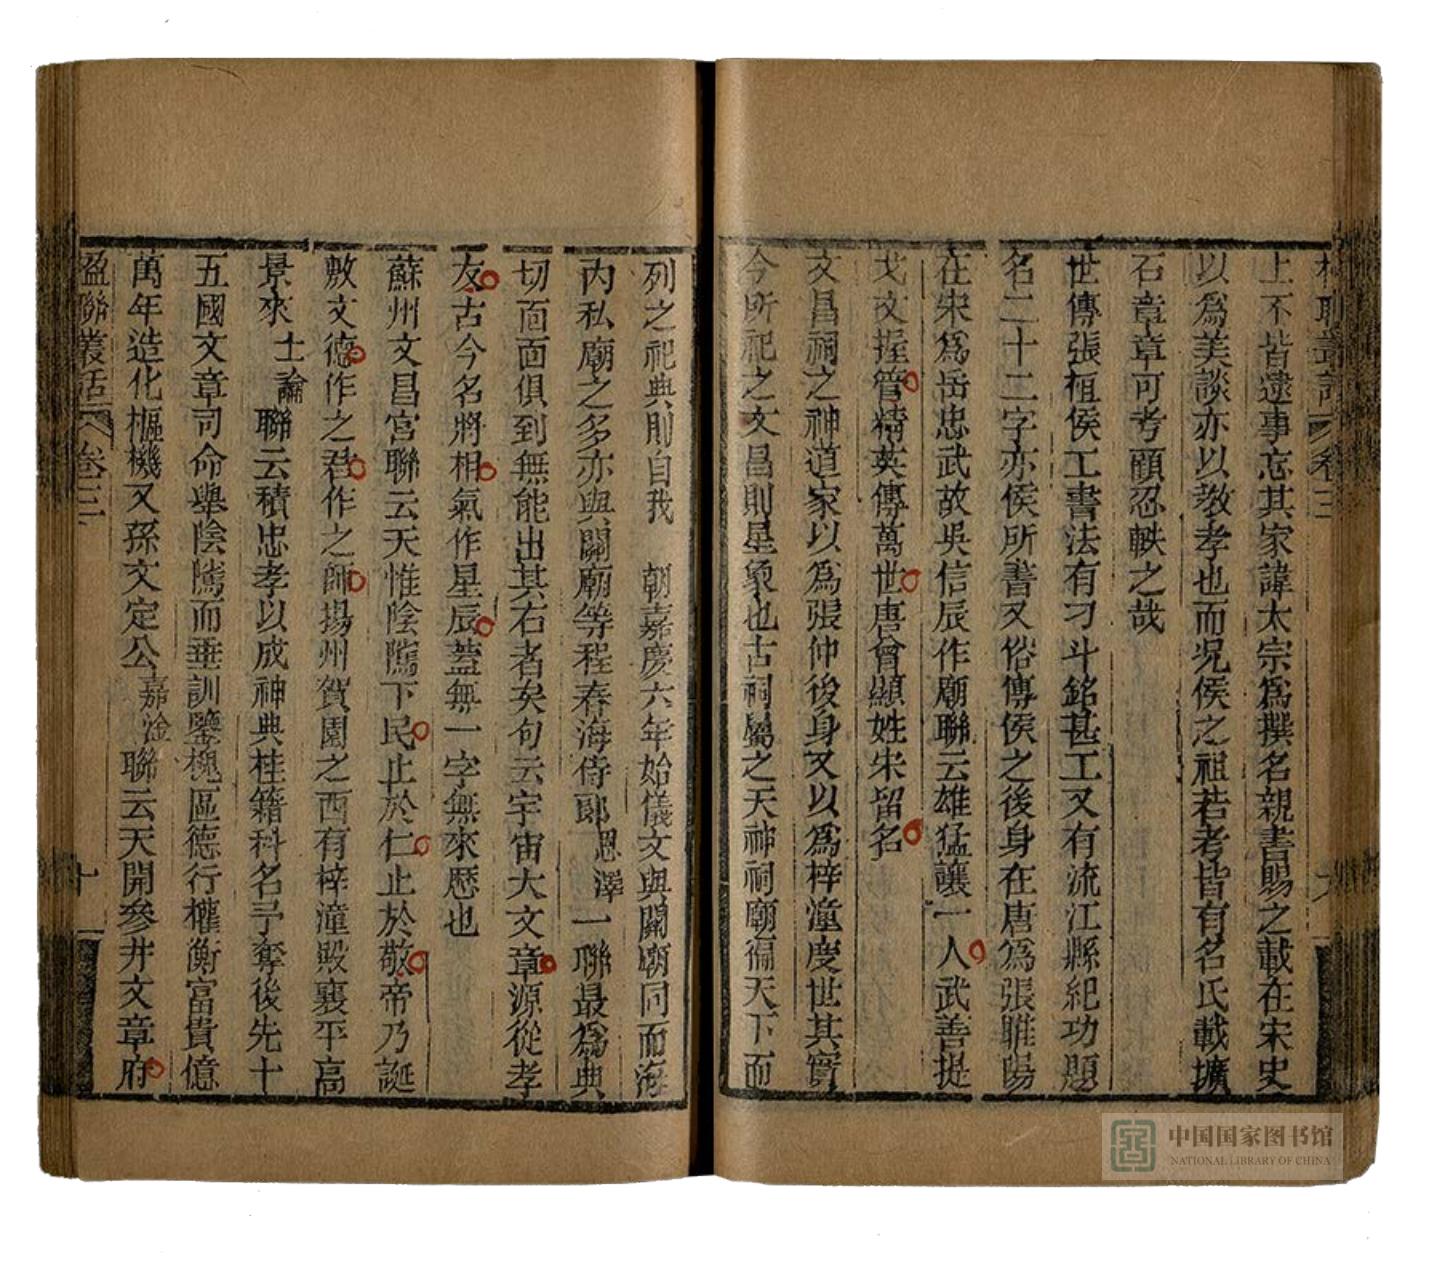 楹聯叢話 卷三
上不皆逮事忘其家諱太宗爲撰名親書賜之載在宋史
以爲美談亦以敎孝也而況侯之祖若考皆有名氏載壙
石章章可考頤忍軼之哉
世傳張桓侯工書法有刁斗銘甚工又有流江縣紀功題
名二十二字亦侯所書又俗傳侯之後身在唐爲張睢陽
在宋爲岳忠武故吳信辰作廟聯云雄猛讓一人武善提
戈文握管精英傳萬世唐曾顯姓宋留名
文昌祠之神道家以爲張仲後身又以爲梓潼度世其實
今所祀之文昌則星象也古祠屬之天神祠廟徧天下而
列之祀典則自我 朝嘉慶六年始儀文與關廟同而海
內私廟之多亦與關廟等程春海侍郎恩澤一聯最爲典
切面面俱到無能出其右者矣句云宇宙大文章源從孝
友古今名將相氣作星辰蓋無一字無來歷也
蘇州文昌宮聯云天惟陰隲下民止於仁止於敬帝乃誕
敷文德作之君作之師揚州賀園之西有梓潼殿襄平高
景來士論聯云積忠孝以成神典桂籍科名予奪後先十
五國文章司命舉陰隲而垂訓鑒槐區德行權衡富貴億
萬年造化樞機又孫文定公嘉淦聯云天開參井文章府
楹聯叢話 卷三 十
中国国家图书馆
NATIONAL LIBRARY OF CHINA